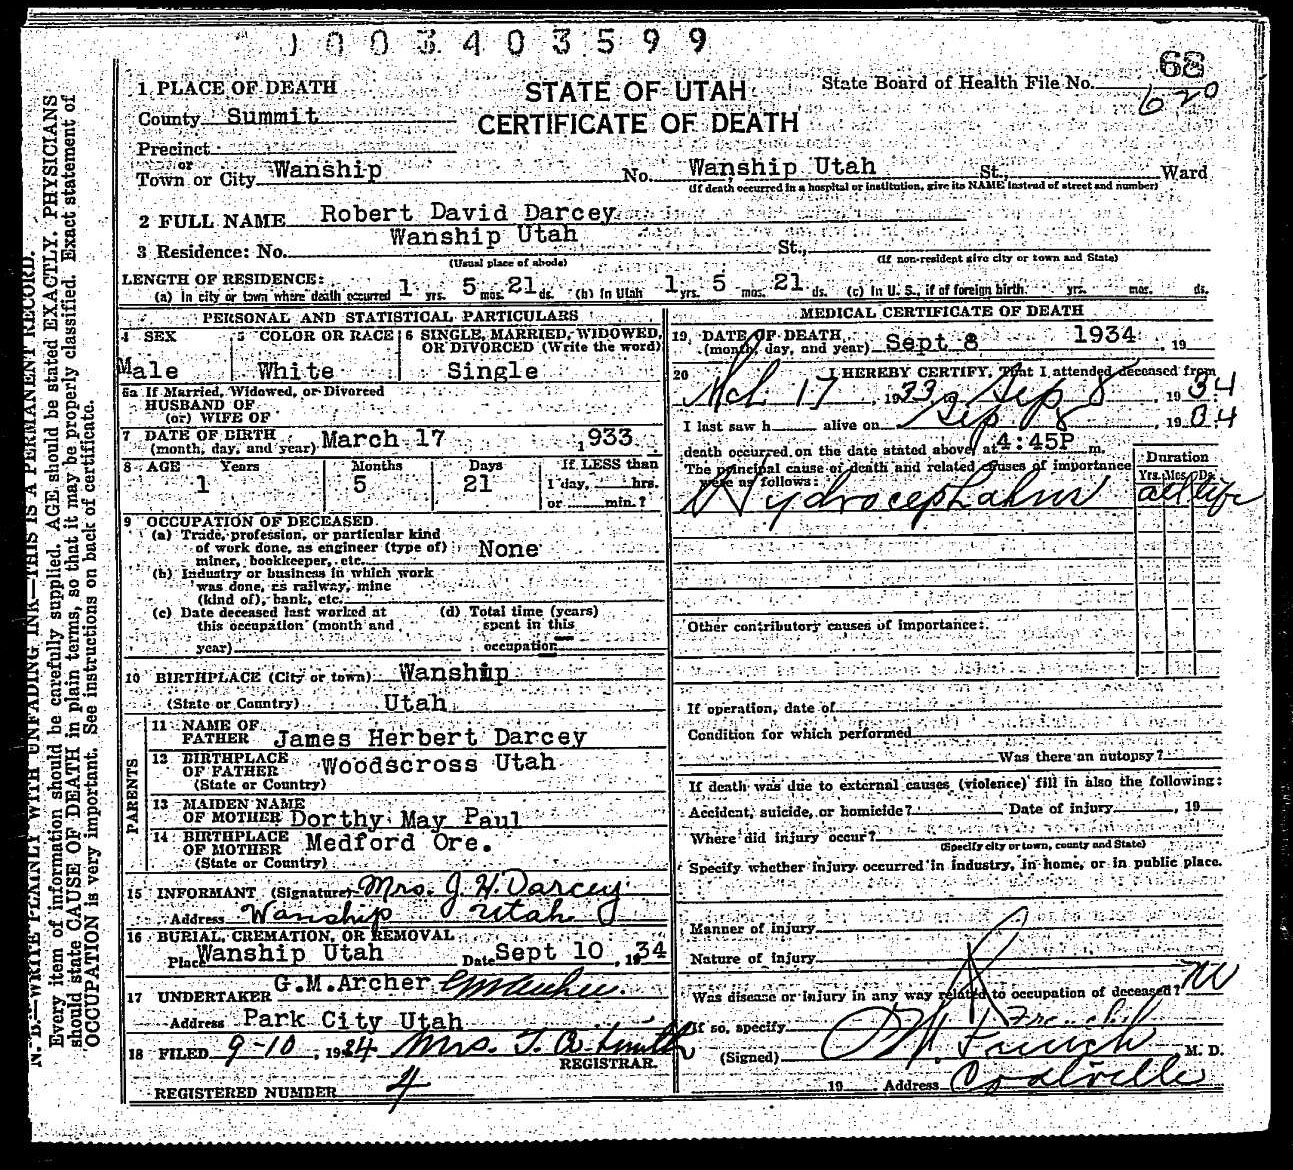 1003403599
68
620
1 PLACE OF DEATH
STATE OF UTAH
State Board of Health File No.
County Summit
CERTIFICATE OF DEATH
Precinct
or
Town or City Wanship No. Wanship Utah St., Ward
(If death occurred in a hospital or institution, give its NAME instead of street and number)
2 FULL NAME Robert David Darcey
3 Residence: No. Wanship Utah St.,
(Usual place of abode) (If non-resident give city or town and State)
LENGTH OF RESIDENCE:
(a) In city or town where death occurred 1 yrs. 5 mos. 21 ds. (b) In Utah 1 yrs. 5 mos. 21 ds. (c) In U. S., if of foreign birth. yrs. mos. ds.
PERSONAL AND STATISTICAL PARTICULARS
4 SEX 5 COLOR OR RACE 6 SINGLE, MARRIED, WIDOWED, OR DIVORCED (Write the word)
Male White Single
6a If Married, Widowed, or Divorced
HUSBAND OF
(or) WIFE OF
7 DATE OF BIRTH
(month, day, and year) March 17 1933
8 AGE Years Months Days If LESS than
1 5 21 1 day, hrs.
or min.?
9 OCCUPATION OF DECEASED
(a) Trade, profession, or particular kind
of work done, as engineer (type of)
miner, bookkeeper, etc. None
(b) Industry or business in which work
was done, as railway, mine
(kind of), bank, etc.
(c) Date deceased last worked at (d) Total time (years)
this occupation (month and spent in this
year) occupation
10 BIRTHPLACE (City or town) Wanship
(State or Country) Utah
PARENTS
11 NAME OF
FATHER James Herbert Darcey
12 BIRTHPLACE
OF FATHER Woodscross Utah
(State or Country)
13 MAIDEN NAME
OF MOTHER Dorthy May Paul
14 BIRTHPLACE
OF MOTHER Medford Ore.
(State or Country)
15 INFORMANT (Signature) Mrs. J. H. Darcey
Address Wanship Utah
16 BURIAL, CREMATION, OR REMOVAL
Place Wanship Utah Date Sept 10 , 1934
17 UNDERTAKER G.M.Archer GM Archer
Address Park City Utah
18 FILED 9-10 , 1934 Mrs. T. A. Smith
REGISTRAR.
REGISTERED NUMBER 4
MEDICAL CERTIFICATE OF DEATH
19 DATE OF DEATH
(month, day, and year) Sept 8 1934 , 19
20 I HEREBY CERTIFY, That I attended deceased from
Mch. 17 , 1933 to Sep 8 , 1934
I last saw h alive on Sep 8 , 1934
death occurred on the date stated above, at 4:45P m.
The principal cause of death and related causes of importance
were as follows:
Duration
Yrs. Mos. Ds.
Hydrocephalus all life
Other contributory causes of importance:
If operation, date of
Condition for which performed
Was there an autopsy?
If death was due to external causes (violence) fill in also the following:
Accident, suicide, or homicide? Date of injury , 19
Where did injury occur?
(Specify city or town, county and State)
Specify whether injury occurred in industry, in home, or in public place.
Manner of injury
Nature of injury
Was disease or injury in any way related to occupation of deceased? No
If so, specify
(Signed) M. D.
19 Address Coalville
N. B.—WRITE PLAINLY WITH UNFADING INK—THIS IS A PERMANENT RECORD.
Every item of information should be carefully supplied. AGE should be stated EXACTLY. PHYSICIANS
should state CAUSE OF DEATH in plain terms, so that it may be properly classified. Exact statement of
OCCUPATION is very important. See instructions on back of certificate.